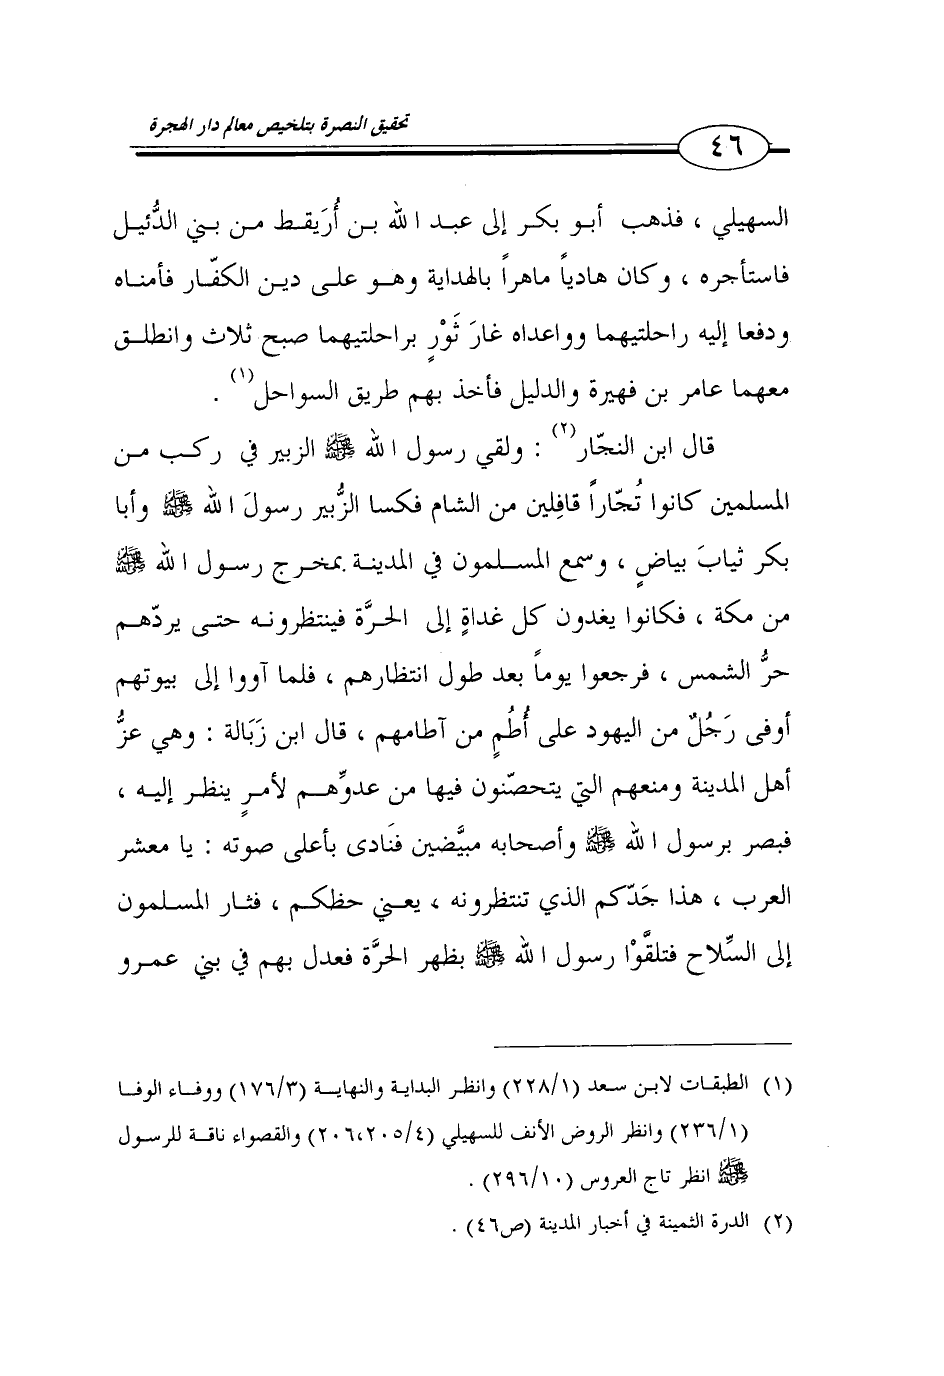 تحقيق النصرة بتلخيص معالم دار الهجرة
٤٦
السهيلي ، فذهب أبو بكر إلى عبد الله بن أُرَيقط من بني الدُّئيل
فاستأجره ، وكان هادياً ماهراً بالهداية وهو على دين الكفّار فأمناه
ودفعا إليه راحلتيهما وواعداه غارَ ثَوْرٍ براحلتيهما صبح ثلاث وانطلق
معهما عامر بن فهيرة والدليل فأخذ بهم طريق السواحل(١) .
قال ابن النجّار(٢) : ولقي رسول الله ﷺ الزبير في ركب من
المسلمين كانوا تُجّاراً قافِلين من الشام فكسا الزُّبير رسولَ الله ﷺ وأبا
بكر ثيابَ بياضٍ ، وسمع المسلمون في المدينة بمخرج رسول الله ﷺ
من مكة ، فكانوا يغدون كل غداةٍ إلى الحرَّة فينتظرونه حتى يردّهم
حرُّ الشمس ، فرجعوا يوماً بعد طول انتظارهم ، فلما آووا إلى بيوتهم
أوفى رَجُلٌ من اليهود على أُطُمٍ من آطامهم ، قال ابن زَبَالة : وهي عزُّ
أهل المدينة ومنعهم التي يتحصّنون فيها من عدوِّهم لأمرٍ ينظر إليه ،
فبصر برسول الله ﷺ وأصحابه مبيَّضين فنَادى بأعلى صوته : يا معشر
العرب ، هذا جَدّكم الذي تنتظرونه ، يعني حظكم ، فثار المسلمون
إلى السِّلاح فتلقَّوْا رسول الله ﷺ بظهر الحرَّة فعدل بهم في بني عمرو
(١) الطبقات لابن سعد (٢٢٨/١) وانظر البداية والنهاية (١٧٦/٣) ووفاء الوفا
(٢٣٦/١) وانظر الروض الأنف للسهيلي (٢٠٦،٢٠٥/٤) والقصواء ناقة للرسول
ﷺ انظر تاج العروس (٢٩٦/١٠) .
(٢) الدرة الثمينة في أخبار المدينة (ص٤٦) .